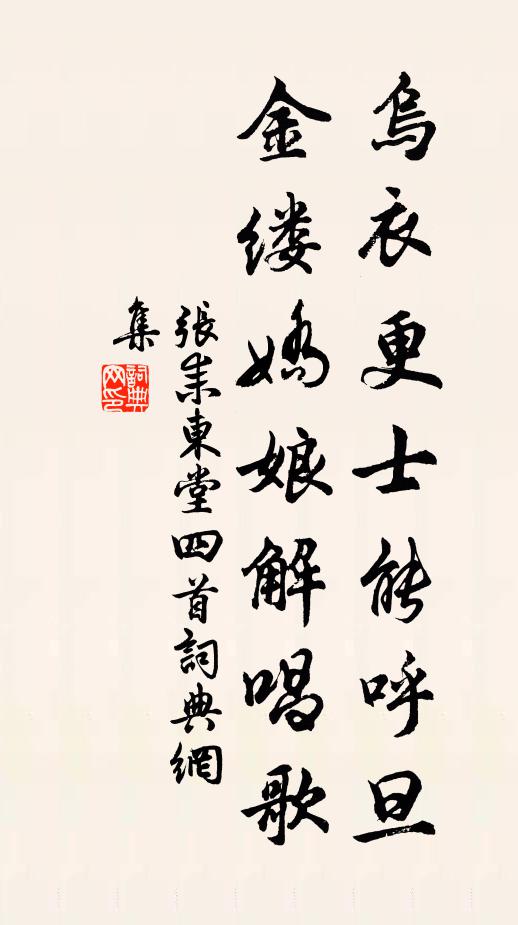 烏衣更士能呼旦
金缕嬌娘解唱歌
張耒東堂四首詞典網
集
詞典
网印